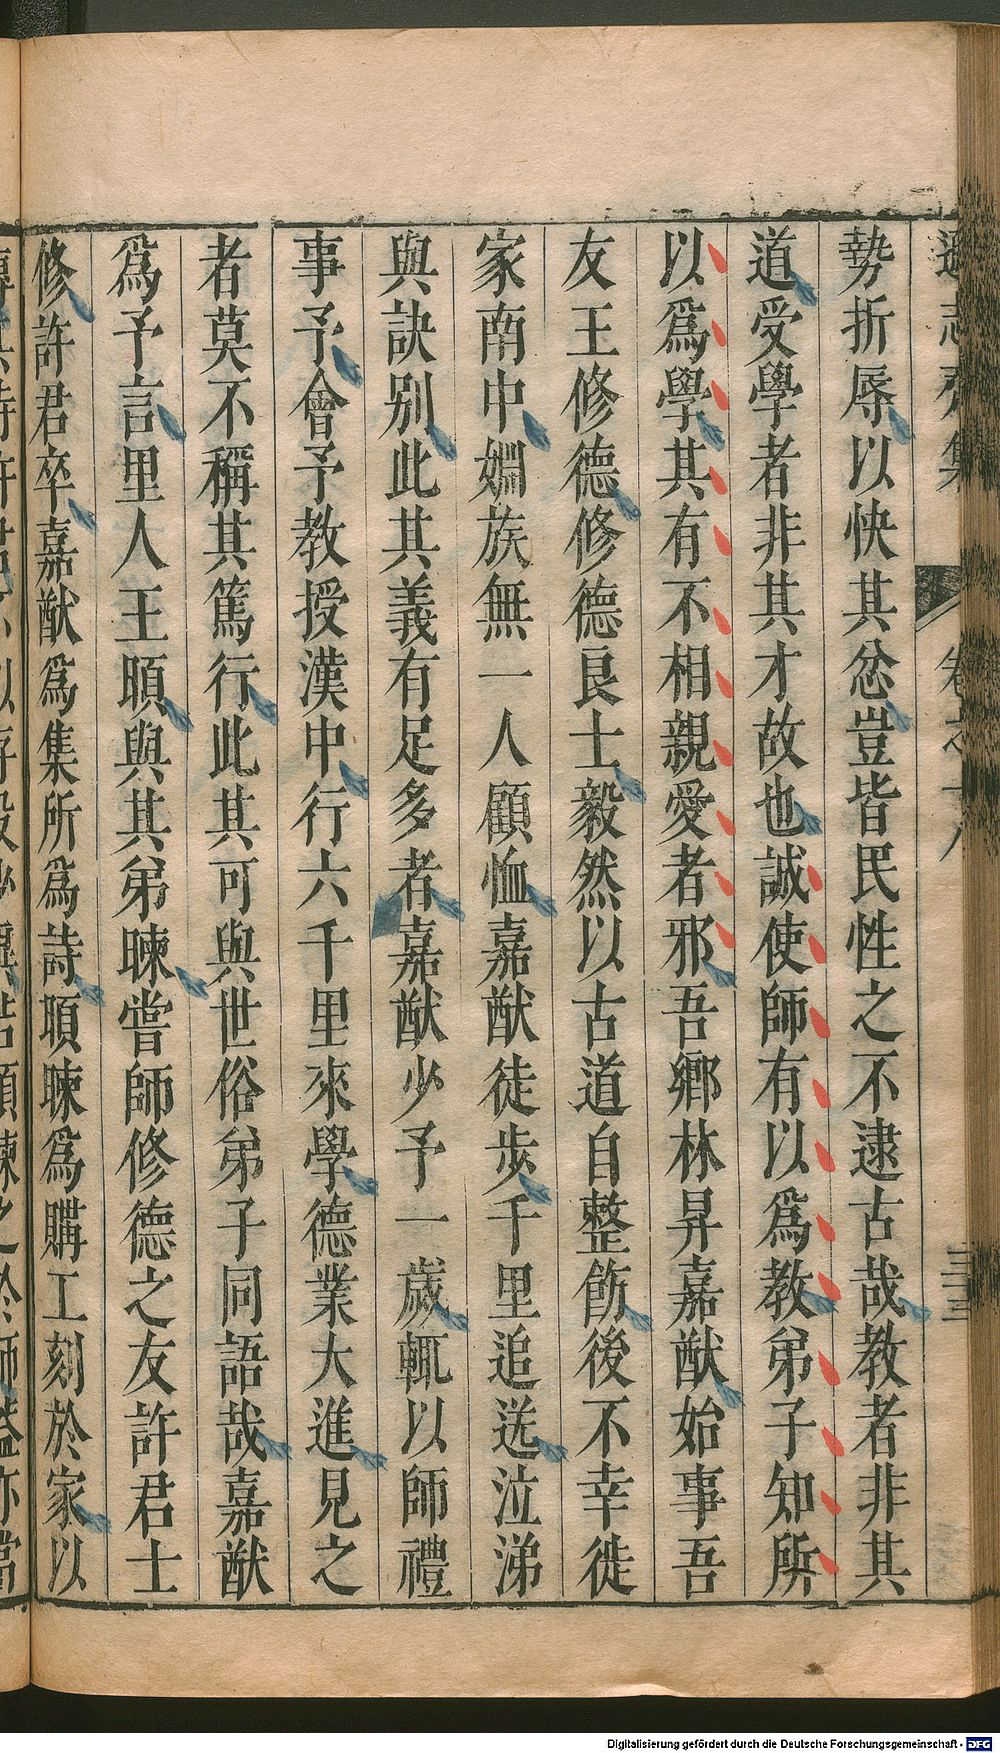 遜志齋集 卷之十八 三三
勢折辱以快其忿豈皆民性之不逮古哉教者非其
道受學者非其才故也誠使師有以爲教弟子知所
以爲學其有不相親愛者邪吾鄉林昇嘉猷始事吾
友王修德修德良士毅然以古道自整飭後不幸徙
家南中姻族無一人顧恤嘉猷徒步千里追送泣涕
與訣别此其義有足多者嘉猷少予一歲輒以師禮
事予會予教授漢中行六千里來學德業大進見之
者莫不稱其篤行此其可與世俗弟子同語哉嘉猷
爲予言里人王䪴與其弟暕嘗師修德之友許君士
修許君卒嘉猷爲集所爲詩䪴暕爲購工刻於家以
Digitalisierung gefördert durch die Deutsche Forschungsgemeinschaft - DFG